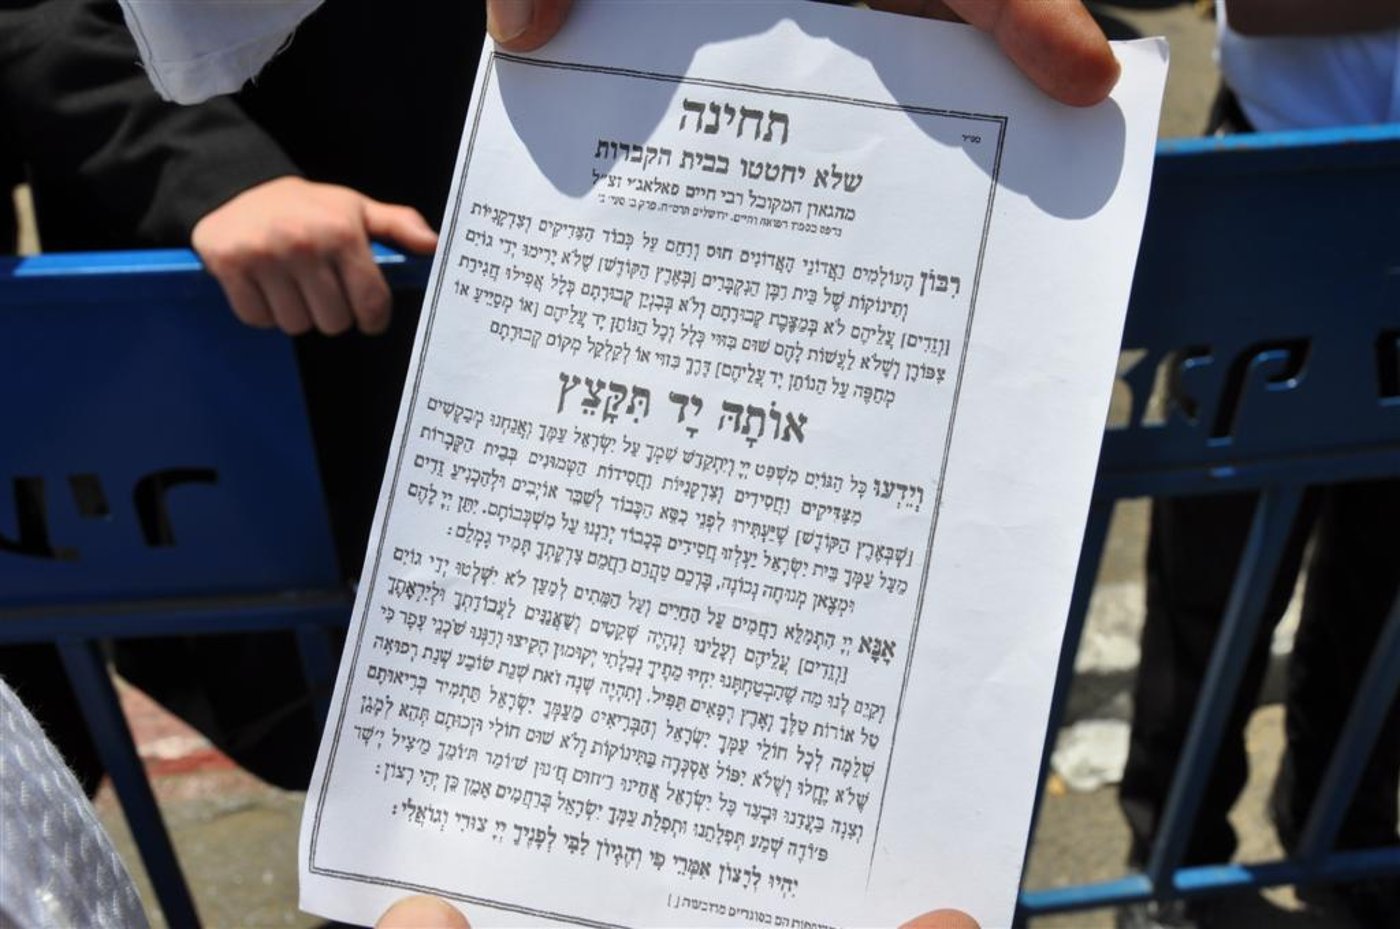 בס״ד
תחינה
שלא יחטטו בבית הקברות
מהגאון המקובל רבי חיים פאלאג׳י זצ״ל
נדפס בספרו רפואה וחיים, ירושלים תרס״ח, פרק ב׳ סעי׳ ב׳
רִבּוֹן הָעוֹלָמִים וַאֲדוֹנֵי הָאֲדוֹנִים חוּס וְרַחֵם עַל כְּבוֹד הַצַּדִּיקִים וְצִדְקָנִיּוֹת
וְתִינוֹקוֹת שֶׁל בֵּית רַבָּן הַנִּקְבָּרִים [בְּאֶרֶץ הַקּוֹדֶשׁ] שֶׁלֹּא יָרִימוּ יְדֵי גוֹיִם
[וְזֵדִים] עֲלֵיהֶם לֹא בְּמַצֶּבֶת קְבוּרָתָם וְלֹא בְּבִנְיַן קְבוּרָתָם כְּלָל אֲפִילוּ חֲגִירַת
צִפּוֹרֶן וְשֶׁלֹּא לַעֲשׂוֹת לָהֶם שׁוּם בִּזּוּי כְּלָל וְכָל הַנּוֹתֵן יָד עֲלֵיהֶם [אוֹ מְסַיֵּיעַ אוֹ
מְחַפֶּה עַל הַנּוֹתֵן יָד עֲלֵיהֶם] דֶּרֶךְ בִּזּוּי אוֹ לְקַלְקֵל מְקוֹם קְבוּרָתָם
אוֹתָהּ יָד תִּקָּצֵץ
וְיֵדְעוּ כָּל הַגּוֹיִם מִשְׁפַּט יְיָ וְיִתְקַדֵּשׁ שִׁמְךָ עַל יִשְׂרָאֵל עַמֶּךָ וַאֲנַחְנוּ מְבַקְשִׁים
מִצַּדִּיקִים וַחֲסִידִים וְצִדְקָנִיּוֹת וַחֲסִידוֹת הַטְּמוּנִים בְּבֵית הַקְּבָרוֹת
[שֶׁבְּאֶרֶץ הַקּוֹדֶשׁ] שֶׁיַּעְתִּירוּ לִפְנֵי כִסֵּא הַכָּבוֹד לְשַׁבֵּר אוֹיְבִים וּלְהַכְנִיעַ זֵדִים
מֵעַל עַמְּךָ בֵּית יִשְׂרָאֵל יַעְלְזוּ חֲסִידִים בְּכָבוֹד יְרַנְּנוּ עַל מִשְׁכְּבוֹתָם. יִתֵּן יְיָ לָהֶם
וּמְצֶאןָ מְנוּחָה נְכוֹנָה, בָּרְכֵם טַהֲרֵם רַחֲמֵם צִדְקָתְךָ תָּמִיד גָּמְלֵם:
אָנָּא יְיָ הִתְמַלֵּא רַחֲמִים עַל הַחַיִּים וְעַל הַמֵּתִים לְמַעַן לֹא יִשְׁלְטוּ יְדֵי גוֹיִם
[וְזֵדִים] עֲלֵיהֶם וְעָלֵינוּ וְנִהְיֶה שְׁקֵטִים וְשַׁאֲנַנִּים לַעֲבוֹדָתְךָ וּלְיִרְאָתֶךָ
וְקַיֵּם לָנוּ מַה שֶּׁהִבְטַחְתָּנוּ יִחְיוּ מֵתֶיךָ נְבֵלָתִי יְקוּמוּן הָקִיצוּ וְרַנְּנוּ שֹׁכְנֵי עָפָר כִּי
טַל אוֹרוֹת טַלֶּךָ וָאָרֶץ רְפָאִים תַּפִּיל. וְתִהְיֶה שָׁנָה זֹאת שְׁנַת שׂוֹבַע שְׁנַת רְפוּאָה
שְׁלֵמָה לְכָל חוֹלֵי עַמְּךָ יִשְׂרָאֵל וְהַבְּרִיאִים מֵעַמְּךָ יִשְׂרָאֵל תַּתְמִיד בְּרִיאוּתָם
שֶׁלֹּא יֶחֱלוּ וְשֶׁלֹּא יִפּוֹל אַסְכָּרָה בַּתִּינוֹקוֹת וְלֹא שׁוּם חוֹלִי וּזְכוּתָם תְּהֵא לְמָגֵן
וְצִנָּה בַּעֲדֵנוּ וּבְעַד כָּל יִשְׂרָאֵל אַחֵינוּ רַ׳חוּם חַ׳נּוּן שׁ׳וֹמֵר תּ׳וֹמֵךְ מַ׳צִּיל יָ׳שָׁר
פּ׳וֹדֶה שְׁמַע תְּפִלָּתֵנוּ וּתְפִלַּת עַמְּךָ יִשְׂרָאֵל בְּרַחֲמִים אָמֵן כֵּן יְהִי רָצוֹן:
יִהְיוּ לְרָצוֹן אִמְרֵי פִי וְהֶגְיוֹן לִבִּי לְפָנֶיךָ יְיָ צוּרִי וְגוֹאֲלִי:
הם בסוגריים מרובעות [ ]